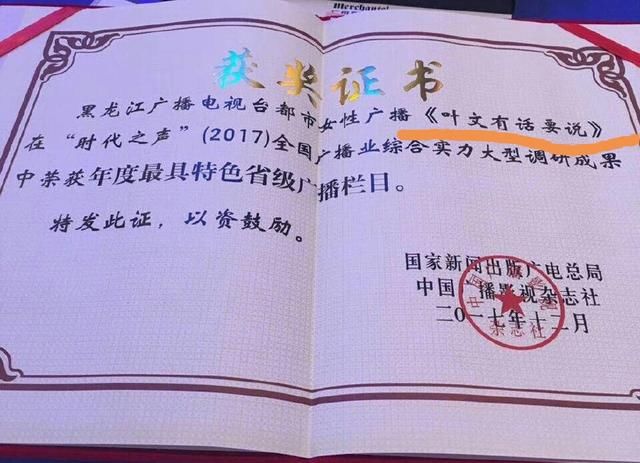 Merchantel
获奖证书
黑龙江广播电视台都市女性广播《叶文有话要说》
在“时代之声”(2017)全国广播业综合实力大型调研成果
中荣获年度最具特色省级广播栏目。
特发此证，以资鼓励。
国家新闻出版广电总局
中国广播影视杂志社
二〇一七年十二月
杂志社